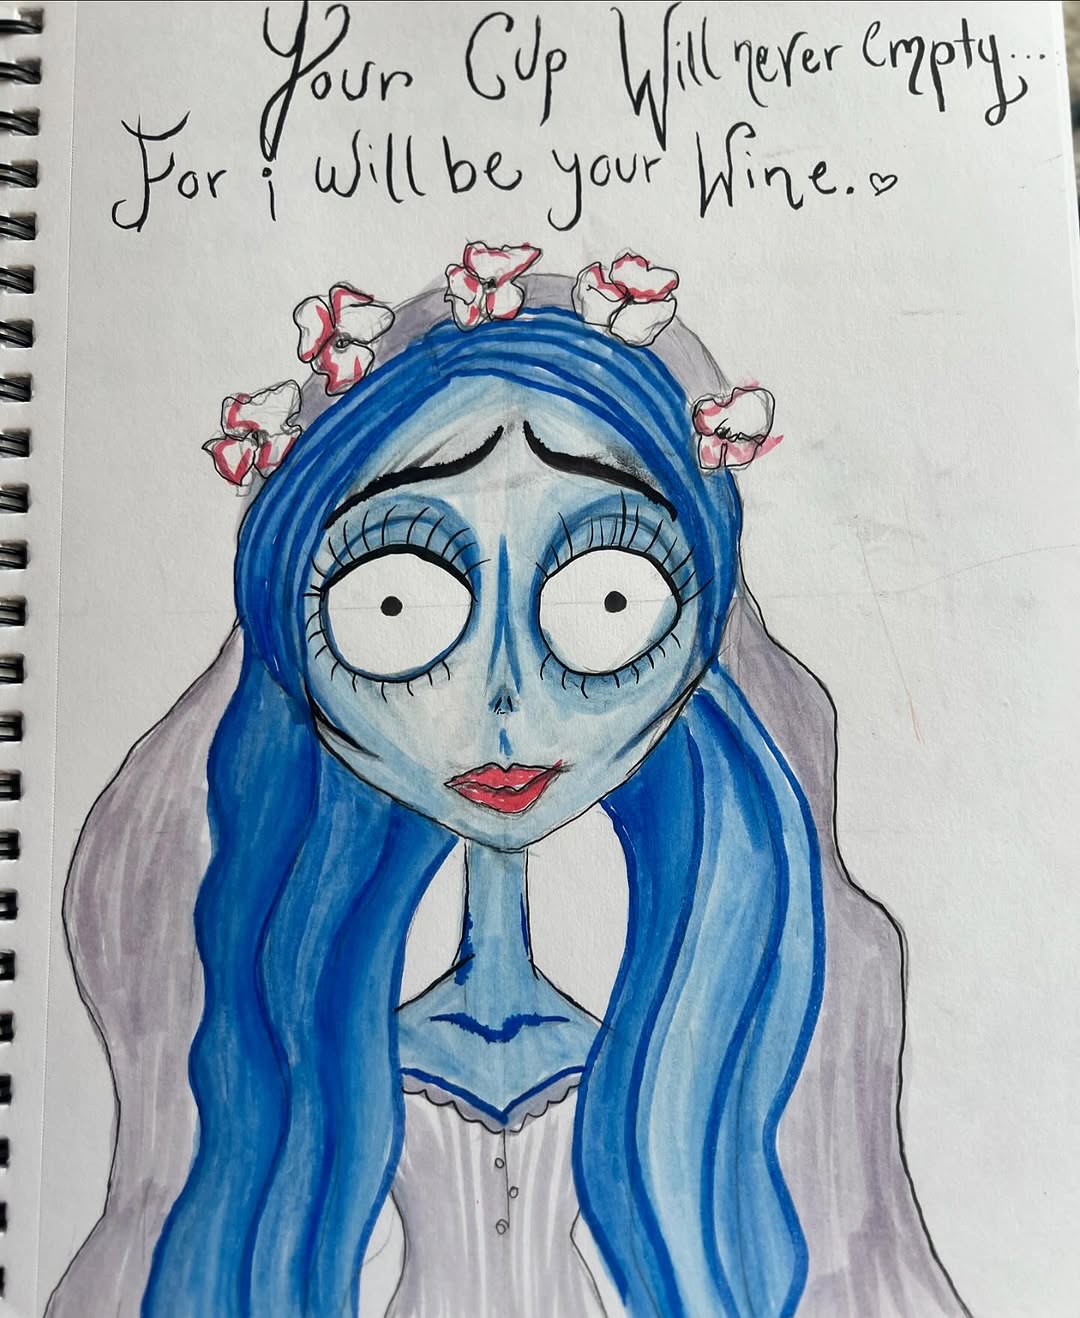 Your Cup Will never Empty...
For i will be your Wine.♡